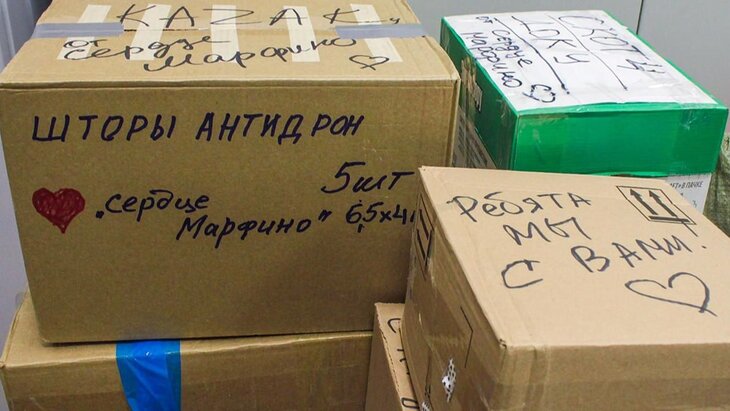 KAZAK
от
сердце
Марфино
ШТОРЫ АНТИДРОН
5шт
„Сердце
Марфино" 6,5х4м
СКОТЧ
от
Сердце
Марфино
Ребята
мы
с Вами.